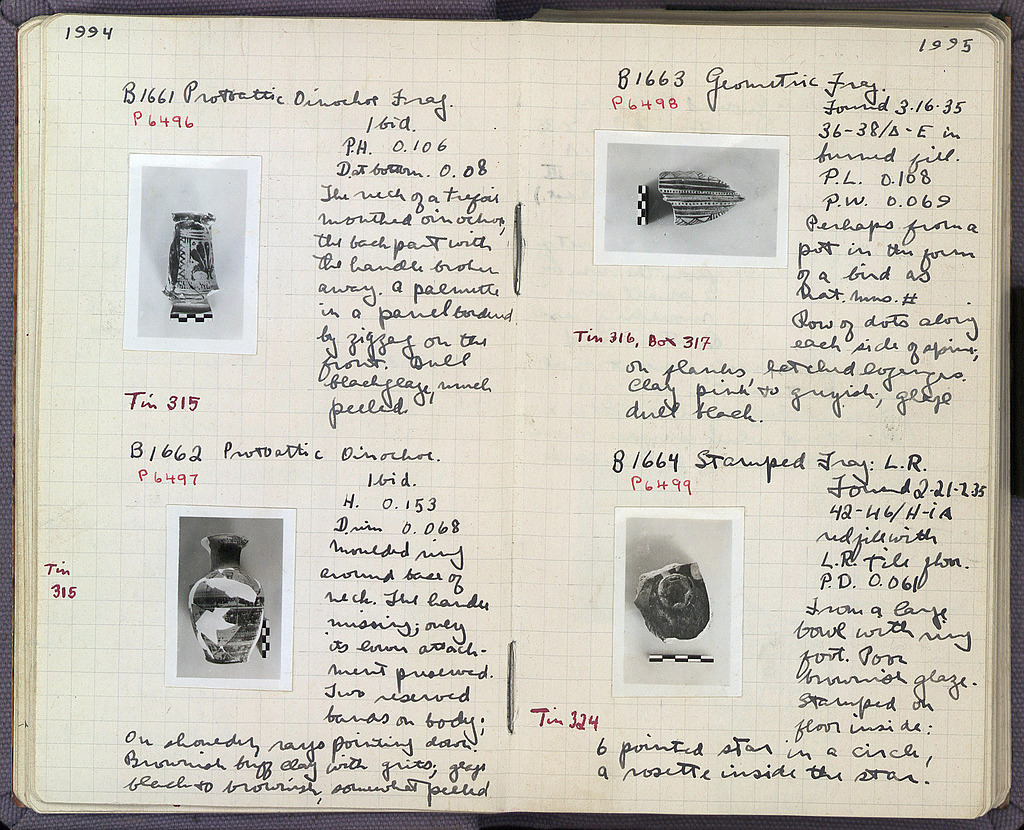 1994
B1661 Protoattic Oinochoe Frag.
P6496
Ibid.
P.H. 0.106
D at bottom. 0.08
The neck of a trefoil
mouthed oinochoe,
the back part with
the handle broken
away. A palmette
in a panel bordered
by zigzag on the
front. Dull
black glaze, much
peeled
Tin 315
B1662 Protoattic Oinochoe.
P6497
Ibid.
H. 0.153
Diam 0.068
Moulded ring
around base of
neck. The handle
missing; only
its lower attach-
ment preserved.
Two reserved
bands on body;
Tin
315
On shoulder, rays pointing down.
Brownish buff clay with grits; glaze
black to brownish, somewhat peeled
1995
B1663 Geometric Frag.
P6498
Found 3-16-35
36-38/Δ-E in
burned fill.
P.L. 0.108
P.W. 0.069
Perhaps from a
pot in the form
of a bird as
Nat. Mus. #
Row of dots along
each side of spine,
Tin 316, Box 317
on flanks, hatched lozenges.
Clay pink to greyish, glaze
dull black.
B1664 Stamped Frag: L.R.
P6499
Found 2-21-35
42-46/H-
red fill with
L.R. tile floor.
P.D. 0.061
From a large
bowl with ring
foot. Poor
brownish glaze.
Stamped on
floor inside:
Tin 324
6 pointed star in a circle,
a rosette inside the star.